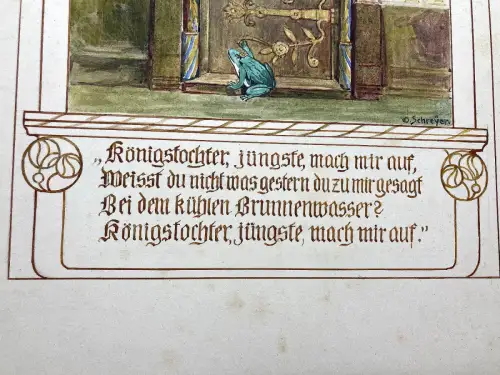 O. Schreyer.
„Königstochter, jüngste, mach mir auf,
Weisst du nicht was gestern du zu mir gesagt
Bei dem kühlen Brunnenwasser?
Königstochter, jüngste, mach mir auf."